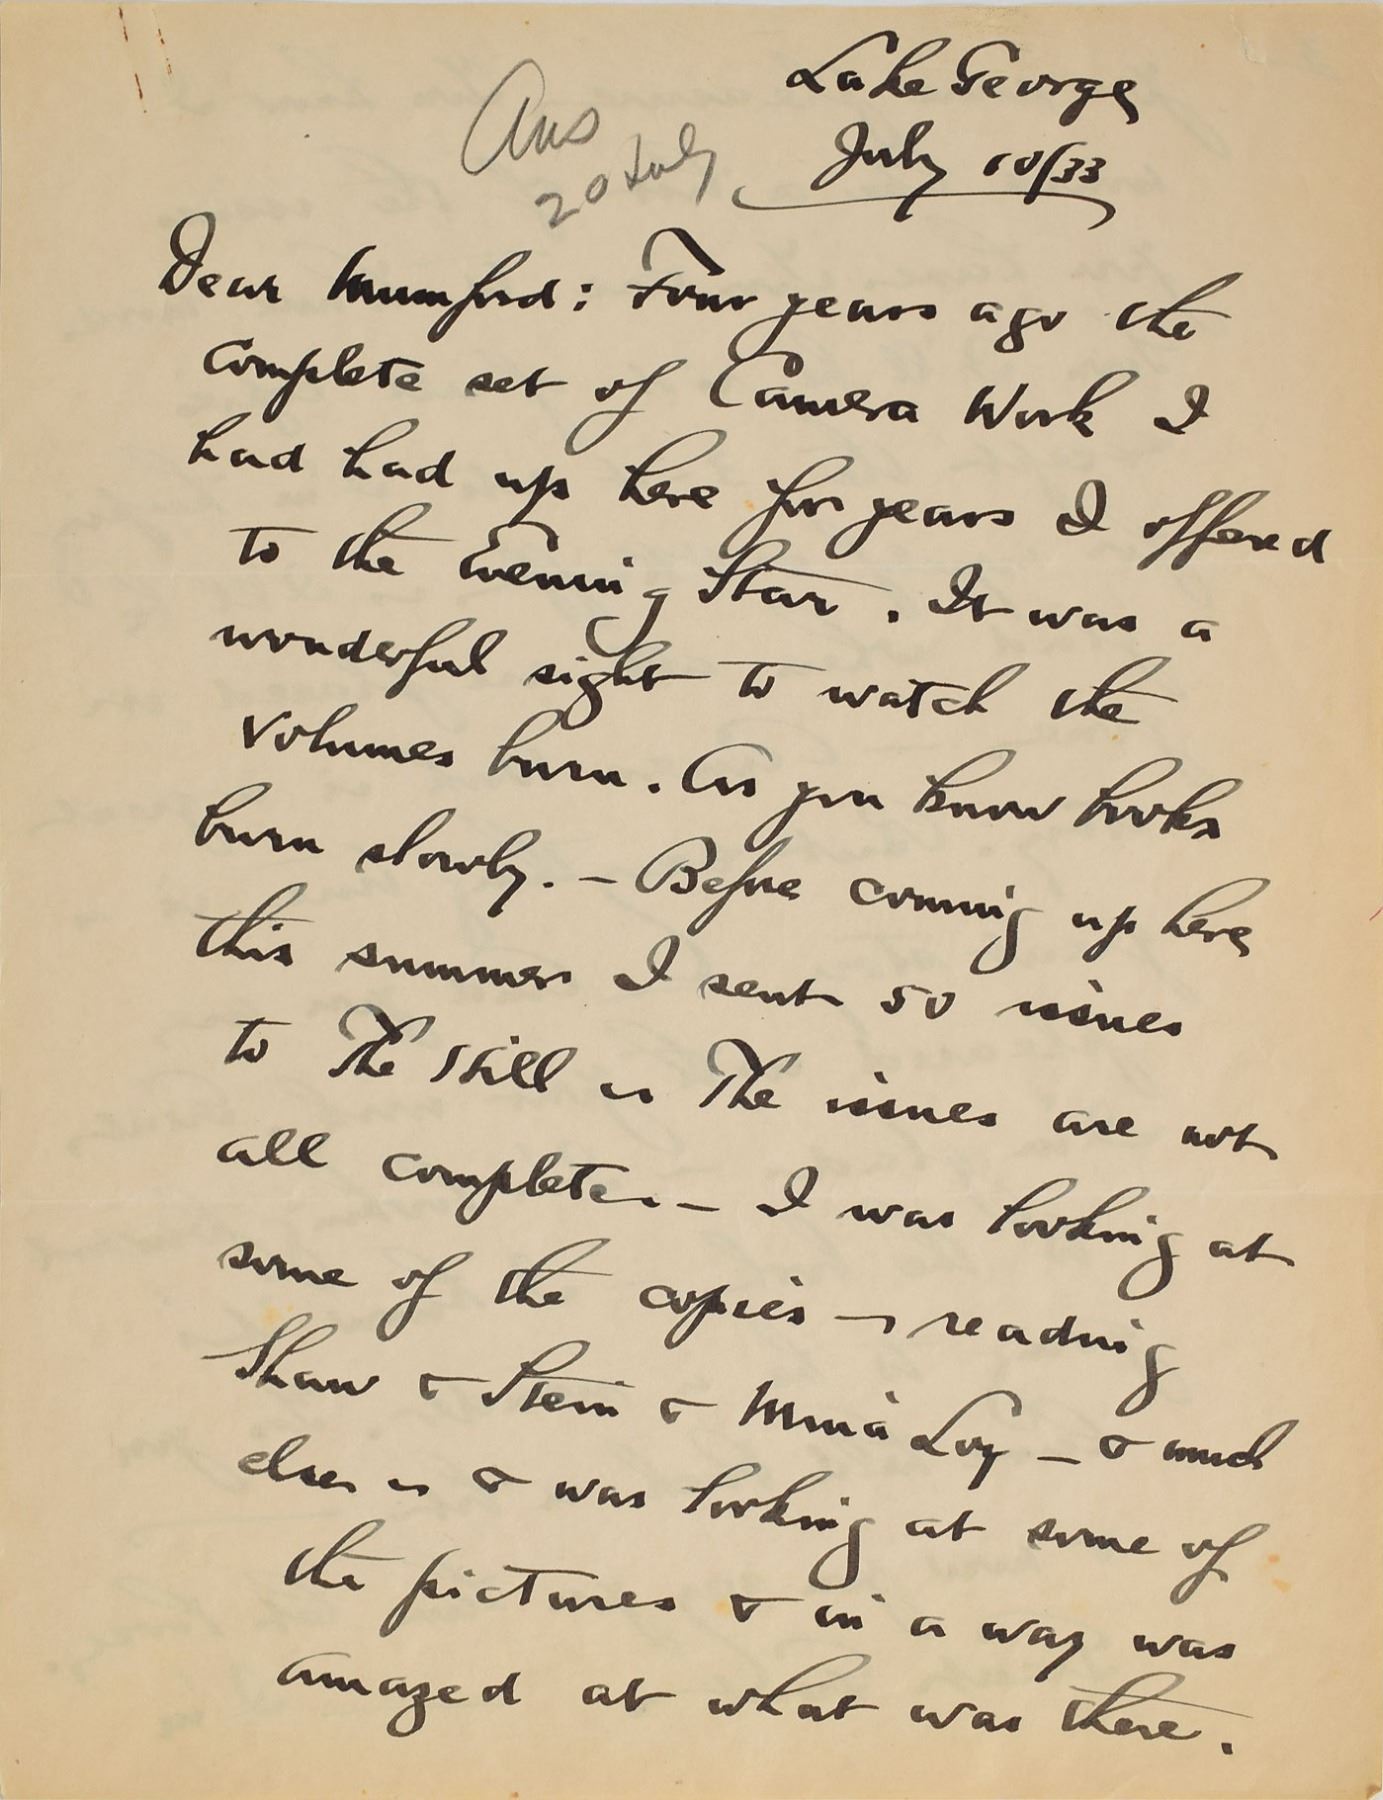 Lake George
July 10/33
Ans
20 July
Dear Mumford: Four years ago the
complete set of Camera Work I
had had up here for years I offered
to the Evening Star. It was a
wonderful sight to watch the
volumes burn. As you know books
burn slowly. — Before coming up here
this summer I sent 50 issues
to The Hill — The issues are not
all complete. — I was looking at
some of the copies — reading
Shaw & Stein & Mina Loy — & much
else — & was looking at some of
the pictures & in a way was
amazed at what was there.